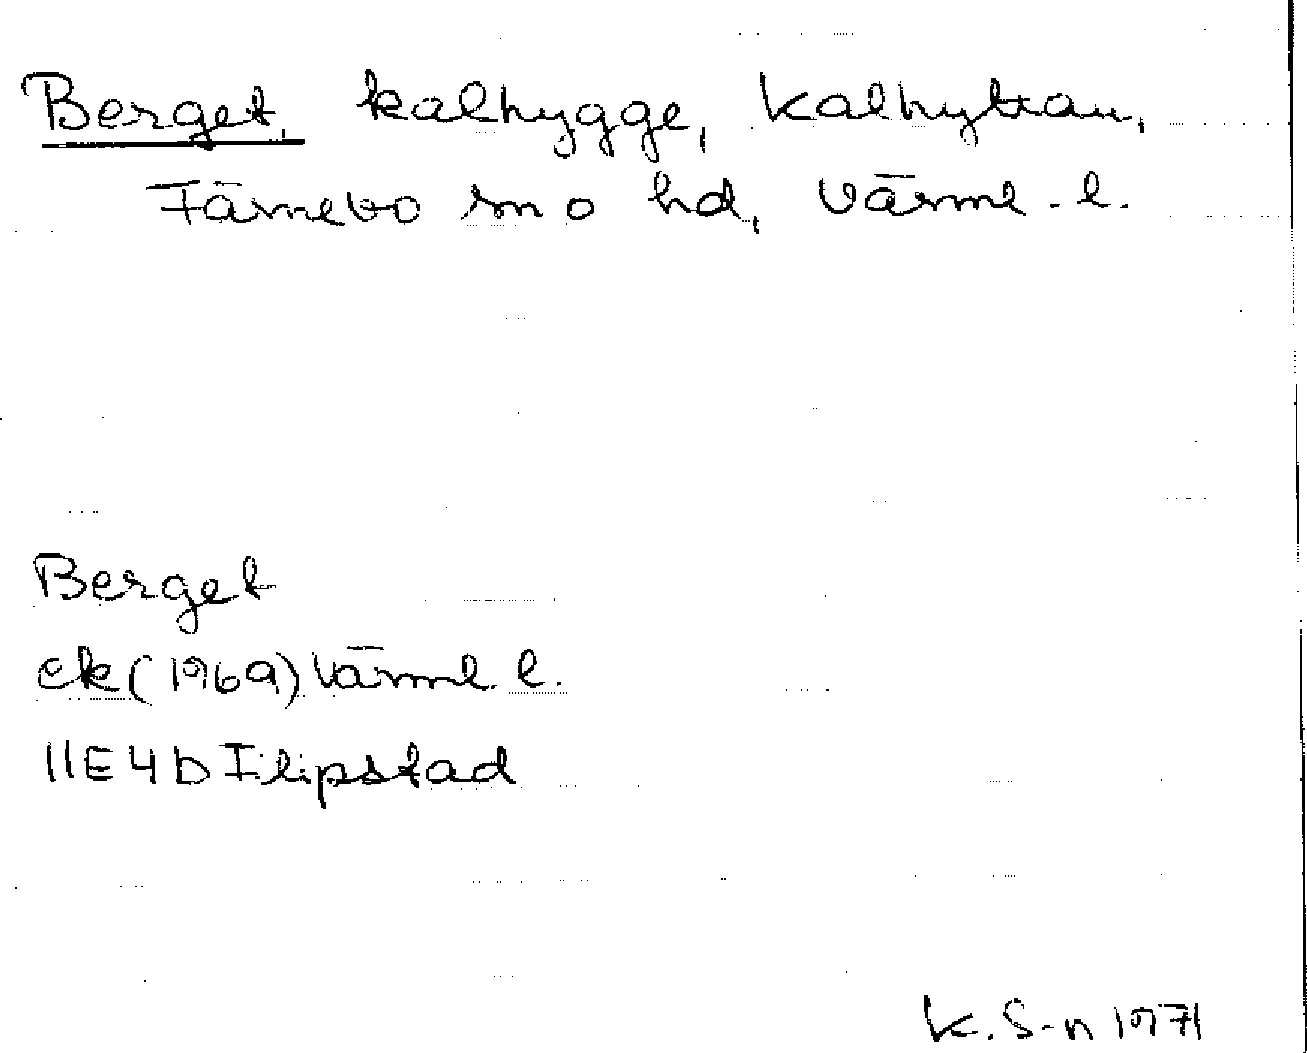 Berget, kalhygge, Kalhyttan,
Färnebo sn o hd, Värml. l.
Berget
ek (1969) Värml. l.
11E4b Filipstad
K. S-n 1971